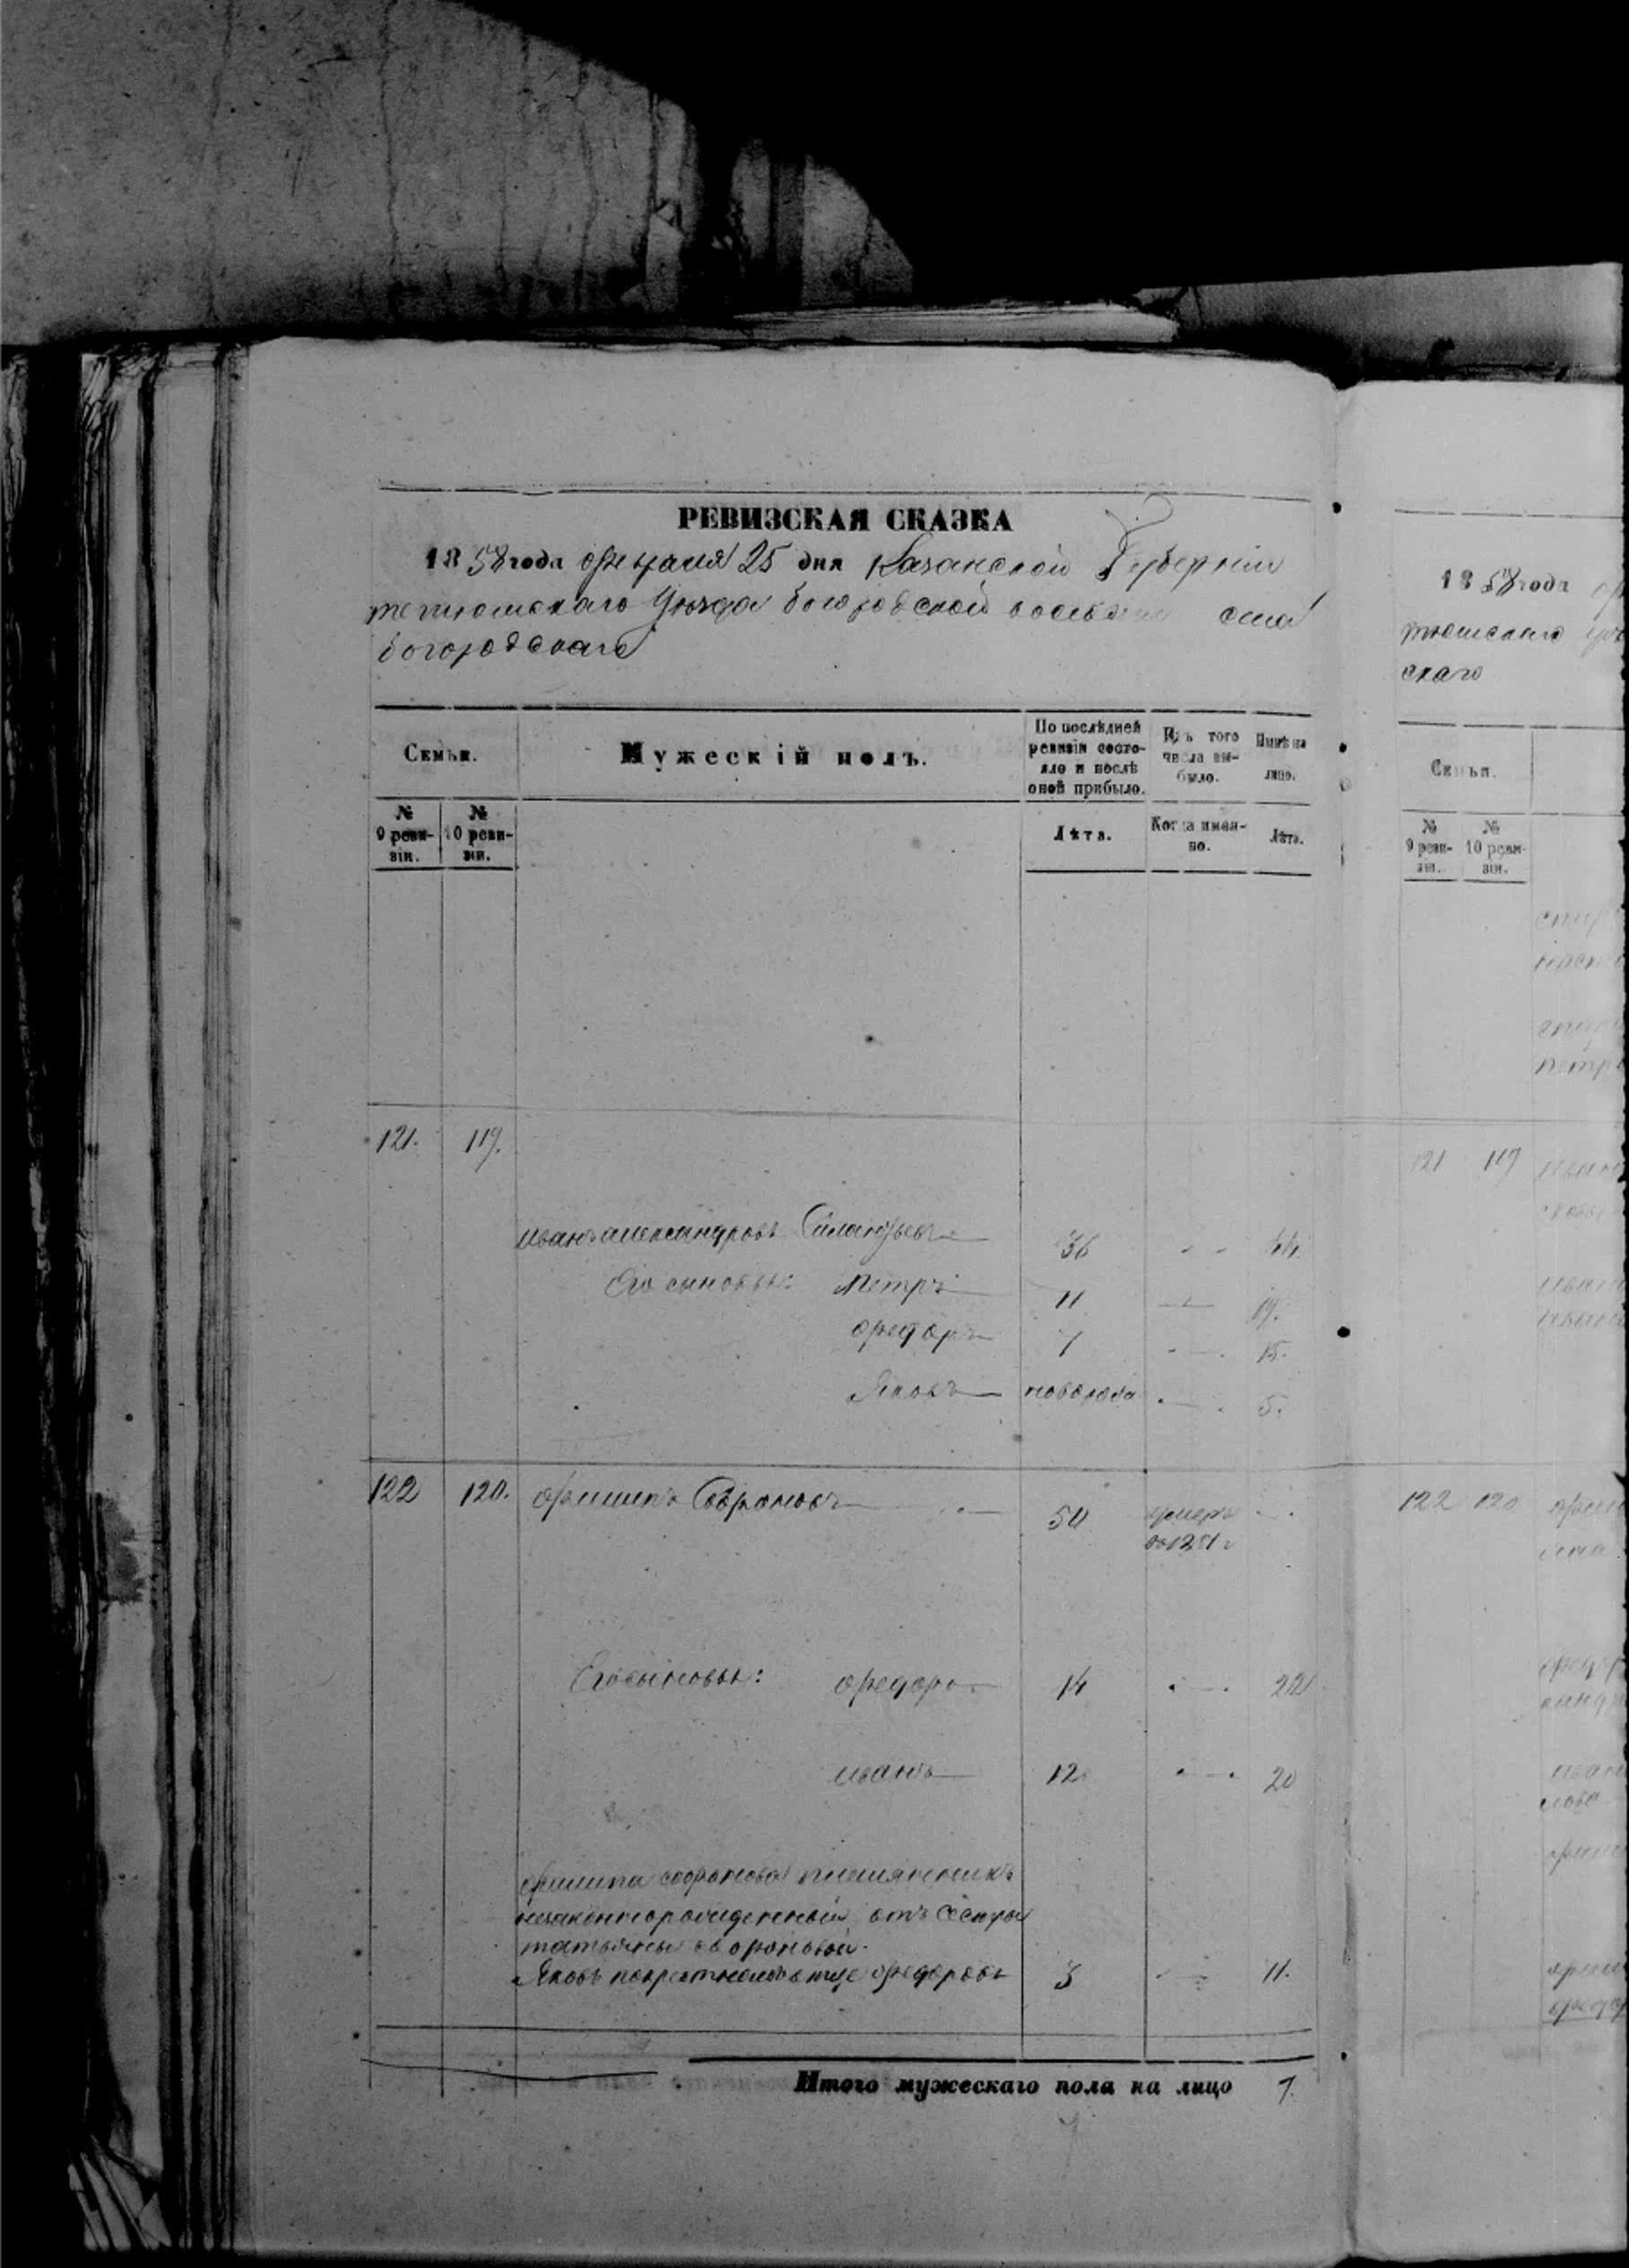 РЕВИЗСКАЯ СКАЗКА
1858 года февраля 25 дня Казанской Губернии
тетюшскаго Уѣзда богородской волости села
богородскаго
Семьи.
Мужескій полъ.
По послѣдней ревизіи состояло и послѣ оной прибыло.
Изъ того числа выбыло.
Нынѣ на лицо.
№ 9 ревизіи.
№ 10 ревизіи.
Лѣта.
Когда именно.
Лѣта.
121. 119.
Иванъ александровъ Силантьевъ 36 44.
Его сыновья: Петръ 11 19.
федоръ 7 15.
Яковъ новорожд 5.
122 120. филипъ Софроновъ 50 умеръ
въ 1851 г
Его сыновья: федоръ 14 22
иванъ 12 20
филипа софронова племянникъ
незаконнорожденный отъ сестры
татьяны софроновой.
Яковъ по крестномъ отце федоровъ 3 11.
Итого мужескаго пола на лицо 7.
7
1858 года
тюшскаго
скаго
Семьи.
№ 9 ревизіи.
№ 10 ревизіи.
121 119
122 120